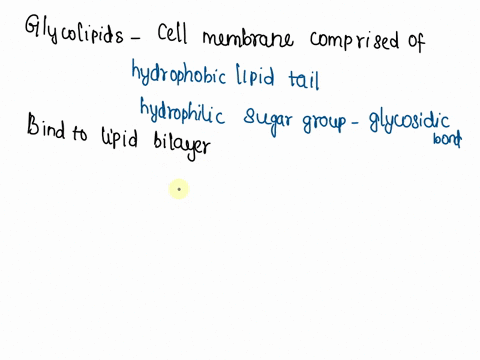 Glycolipids - Cell membrane comprised of
hydrophobic lipid tail
hydrophilic sugar group - glycosidic
bond
Bind to lipid bilayer